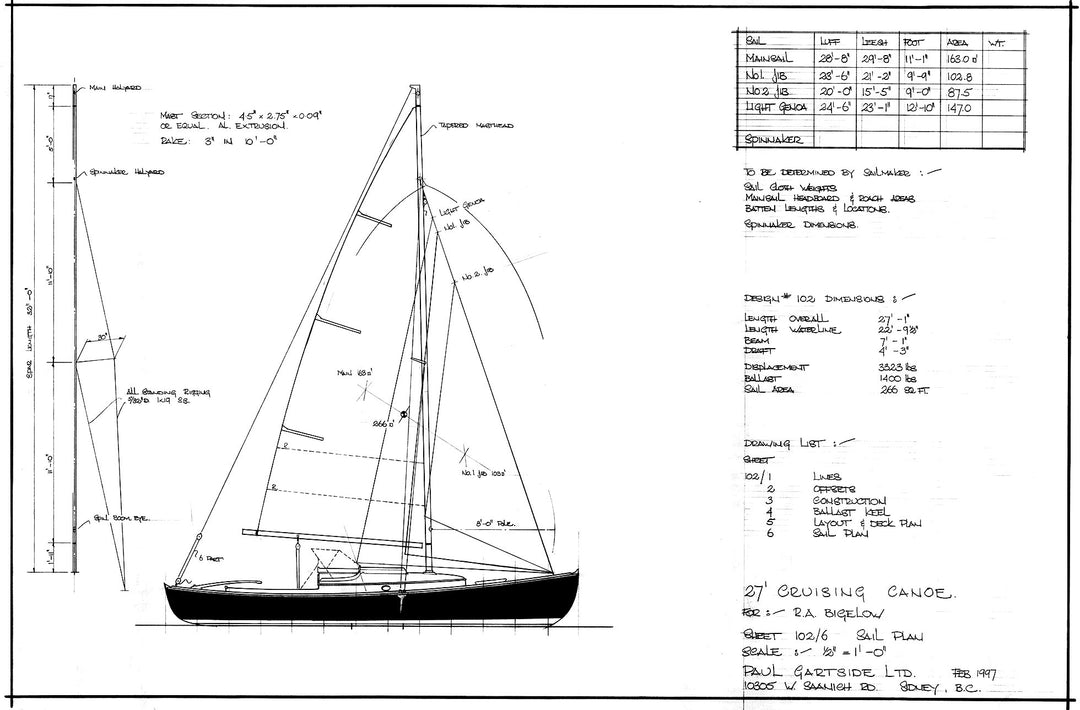 SAIL LUFF LEECH FOOT AREA WT.
MAINSAIL 28'-8" 29'-8" 11'-1" 163.0 □'
No1. JIB 23'-6" 21'-2" 9'-9" 102.8
No.2. JIB 20'-0" 15'-5" 9'-0" 87.5
LIGHT GENOA 24'-6" 23'-1" 12'-10" 147.0
SPINNAKER
MAIN HALYARD
MAST SECTION: 4.5" x 2.75" x 0.09"
OR EQUAL. AL. EXTRUSION.
RAKE: 3" IN 10'-0"
TAPERED MASTHEAD
SPINNAKER HALYARD
LIGHT GENOA
No1. JIB
No.2. JIB
5'-0"
11'-10"
SPAR LENGTH 32'-0"
30"
ALL STANDING RIGGING
5/32"D 1x19 SS.
MAIN 163□'
266□'
No.1 JIB 103□'
2
2
11'-10"
SPIN BOOM EYE.
8'-0" POLE.
6 PART
1'-11"
TO BE DETERMINED BY SAILMAKER :-
SAIL CLOTH WEIGHTS
MAINSAIL HEADBOARD & ROACH AREAS
BATTEN LENGTHS & LOCATIONS.
SPINNAKER DIMENSIONS.
DESIGN # 102 DIMENSIONS :-
LENGTH OVERALL 27'-1"
LENGTH WATERLINE 22'-9½"
BEAM 7'-1"
DRAFT 4'-3"
DISPLACEMENT 3323 lbs
BALLAST 1400 lbs
SAIL AREA 266 SQ FT.
DRAWING LIST :-
SHEET
102/1 LINES
2 OFFSETS
3 CONSTRUCTION
4 BALLAST KEEL
5 LAYOUT & DECK PLAN
6 SAIL PLAN
27' CRUISING CANOE.
FOR :- R.A. BIGELOW
SHEET 102/6 SAIL PLAN
SCALE :- ½" = 1'-0"
PAUL GARTSIDE LTD. FEB 1997
10305 W. SAANICH RD. SIDNEY, B.C.